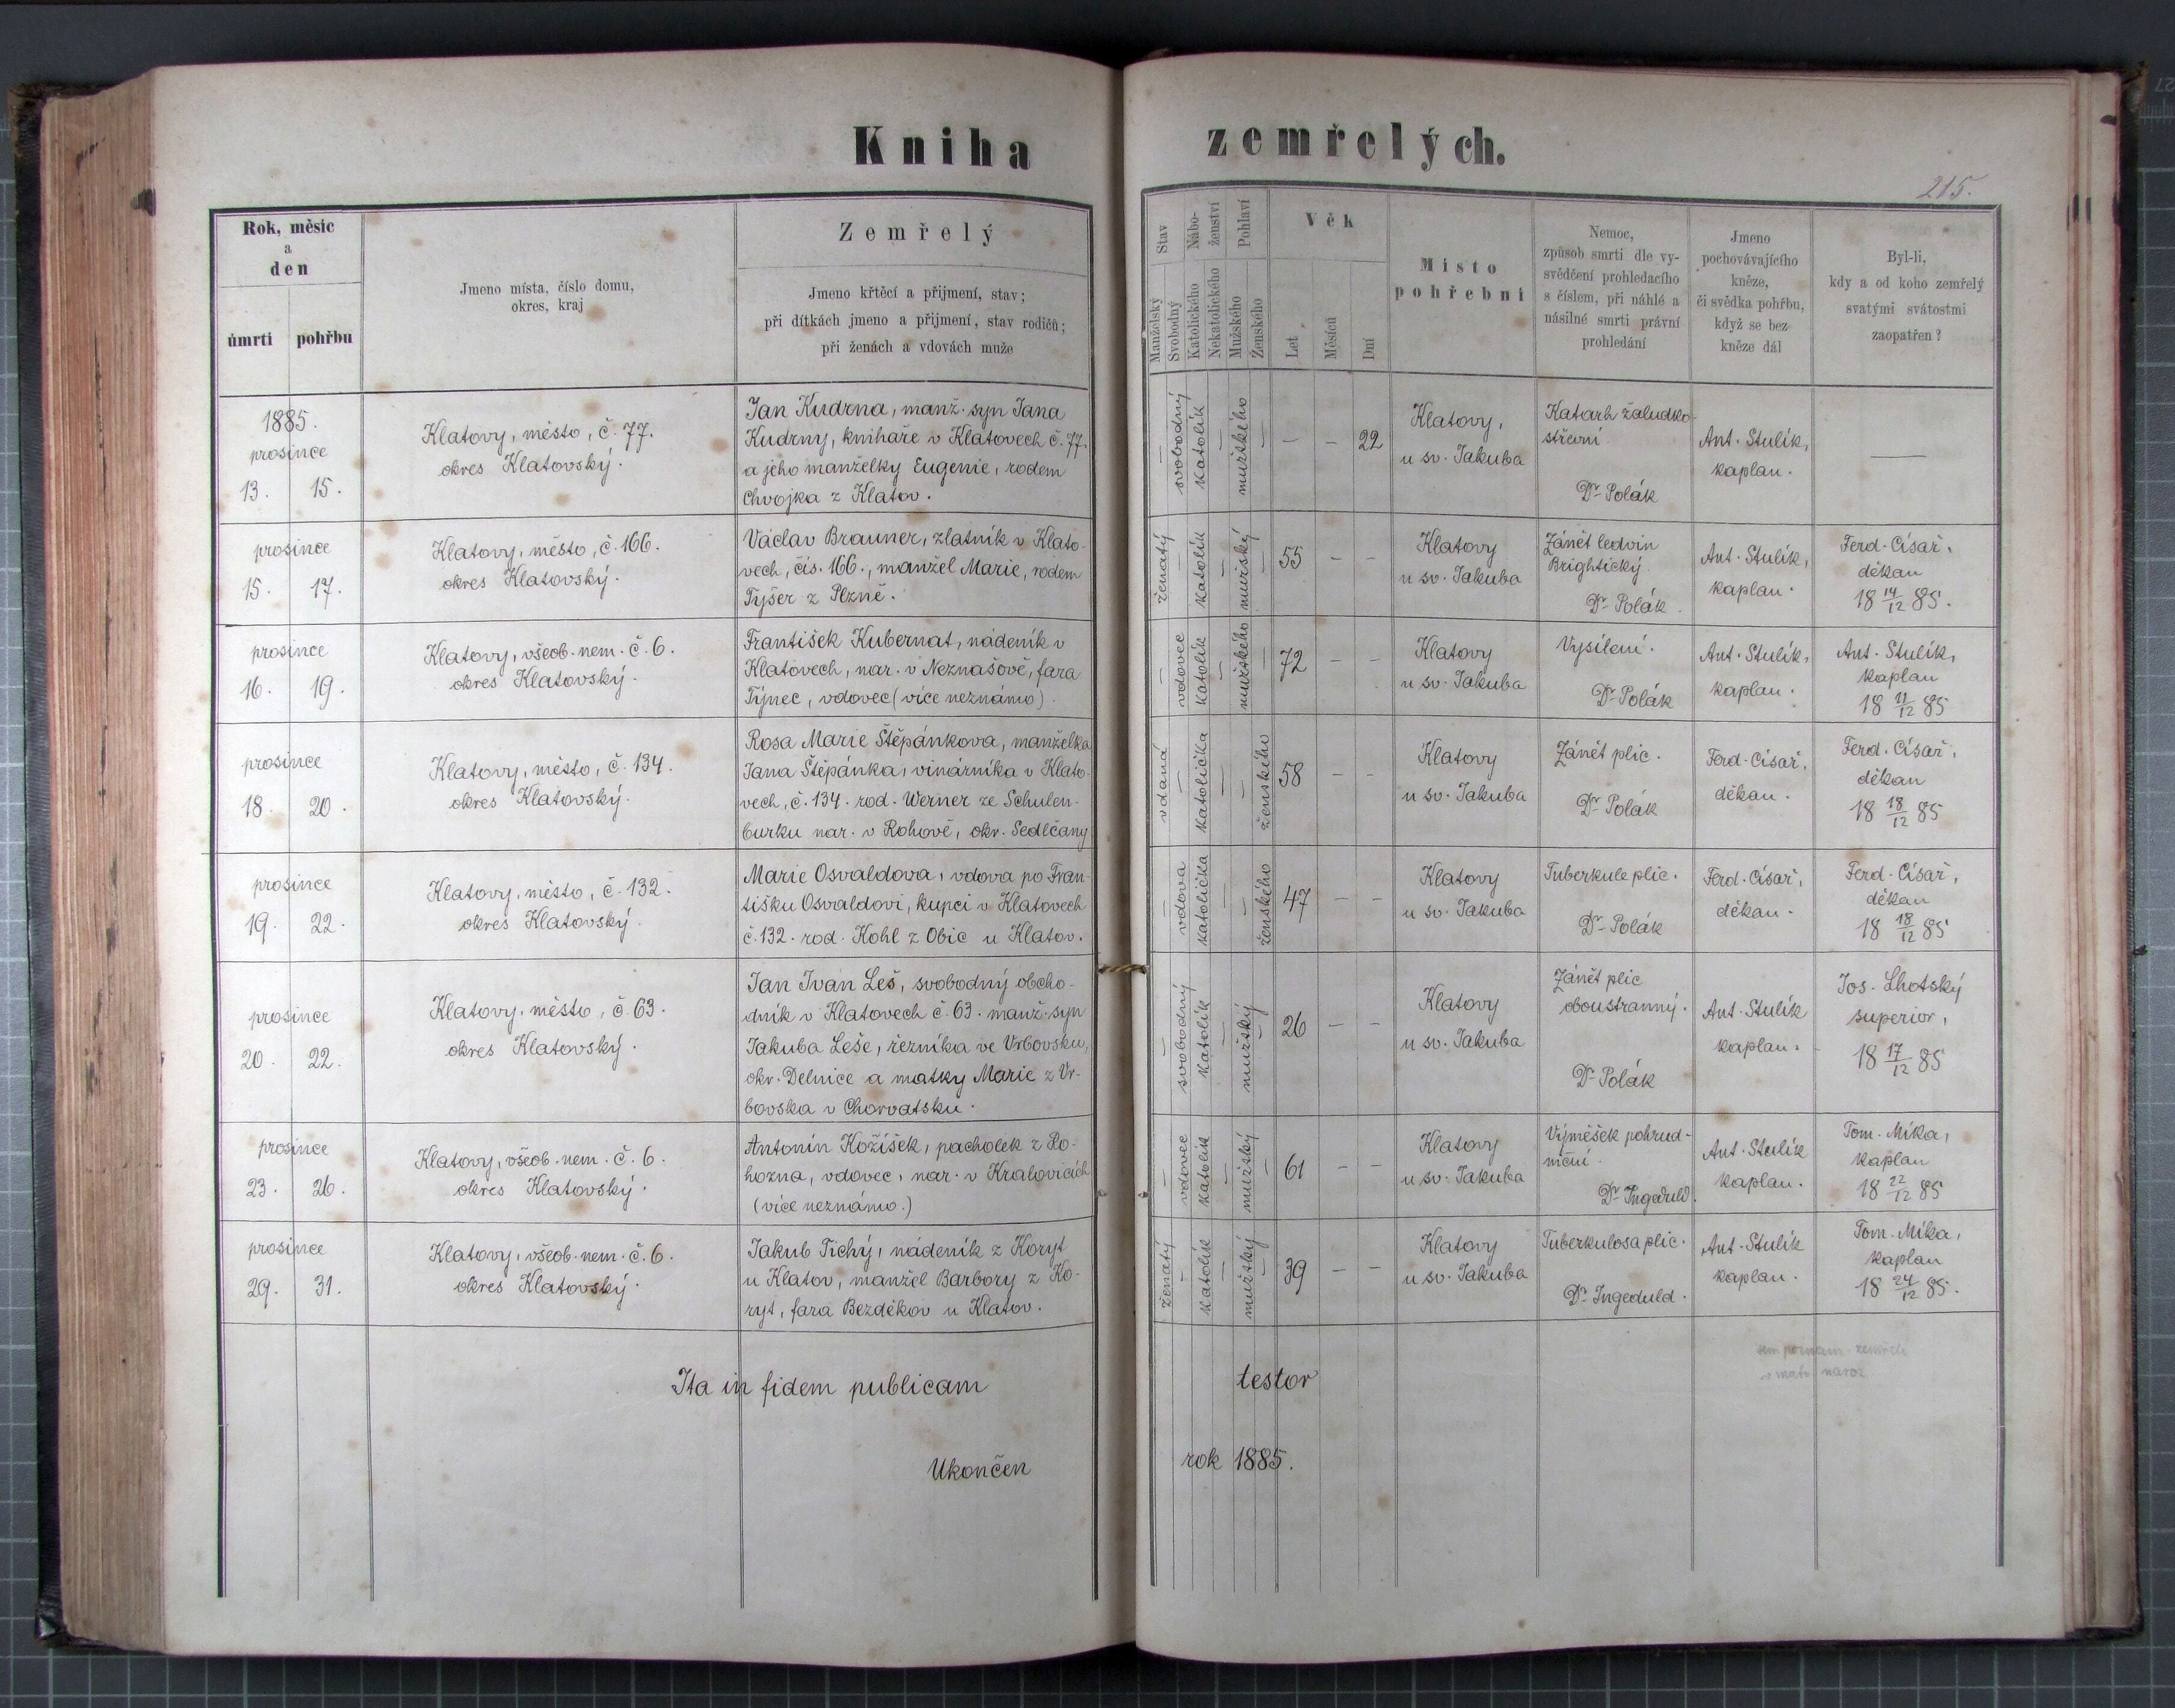 Kniha zemřelých.
215.
Rok, měsíc
a
den
úmrtí
pohřbu
Jmeno místa, číslo domu,
okres, kraj
Zemřelý
Jmeno křtěcí a přijmení, stav;
při dítkách jmeno a přijmení, stav rodičů;
při ženách a vdovách muže
Stav
Manželský
Svobodný
Nábo-
ženství
Katolického
Nekatolického
Pohlaví
Mužského
Ženského
Věk
Let
Měsíců
Dní
Místo
pohřební
Nemoc,
způsob smrti dle vy-
svědčení prohledacího
s číslem, při náhlé a
násilné smrti právní
prohledání
Jmeno
pochovávajícího
kněze,
či svědka pohřbu,
když se bez
kněze dál
Byl-li,
kdy a od koho zemřelý
svatými svátostmi
zaopatřen?
1885.
prosince
13. 15.
Klatovy, město, č. 77.
okres Klatovský.
Jan Kudrna, manž. syn Jana
Kudrny, knihaře v Klatovech č. 77.
a jeho manželky Eugenie, rodem
Chvojka z Klatov.
— svobodný katolík — mužského — — — 22
Klatovy,
u sv. Jakuba
Katarh žaludko-
střevní
Dr Polák
Ant. Stulík,
kaplan.
—
prosince
15. 17.
Klatovy, město, č. 166.
okres Klatovský.
Václav Brauner, zlatník v Klato-
vech, čís. 166., manžel Marie, rodem
Tyšer z Plzně.
ženatý — katolík — mužský — 55 — —
Klatovy
u sv. Jakuba
Zánět ledvin
Brightický.
Dr Polák.
Ant. Stulík,
kaplan.
Ferd. Císař,
děkan
18 14/12 85.
prosince
16. 19.
Klatovy, všeob. nem. č. 6.
okres Klatovský.
František Kubernat, nádeník v
Klatovech, nar. v Neznašově, fara
Týnec, vdovec (více neznámo).
— vdovec katolík — mužského — 72 — —
Klatovy
u sv. Jakuba
Vysílení.
Dr Polák
Ant. Stulík,
kaplan.
Ant. Stulík,
kaplan
18 11/12 85
prosince
18. 20.
Klatovy, město, č. 134.
okres Klatovský.
Rosa Marie Štěpánkova, manželka
Jana Štěpánka, vinárníka v Klato-
vech, č. 134. rod. Werner ze Schulen-
burku nar. v Rohově, okr. Sedlčany
vdaná — katolička — — ženského 58 — —
Klatovy
u sv. Jakuba
Zánět plic.
Dr Polák
Ferd. Císař,
děkan.
Ferd. Císař,
děkan
18 18/12 85
prosince
19. 22.
Klatovy, město, č. 132.
okres Klatovský.
Marie Osvaldova, vdova po Fran-
tišku Osvaldovi, kupci v Klatovech
č. 132. rod. Kohl z Obic u Klatov.
— vdova katolička — — ženského 47 — —
Klatovy
u sv. Jakuba
Tuberkule plic.
Dr Polák
Ferd. Císař,
děkan.
Ferd. Císař,
děkan
18 18/12 85
prosince
20. 22.
Klatovy, město, č. 63.
okres Klatovský.
Jan Ivan Leš, svobodný obcho-
dník v Klatovech č. 63. manž. syn
Jakuba Leše, řezníka ve Vrbovsku,
okr. Delnice a matky Marie z Vr-
bovska v Chorvatsku.
— svobodný katolík — mužský — 26 — —
Klatovy
u sv. Jakuba
Zánět plic
oboustranný.
Dr Polák
Ant. Stulík
kaplan.
Jos. Lhotský
superior,
18 17/12 85
prosince
23. 26.
Klatovy, všeob. nem. č. 6.
okres Klatovský.
Antonín Kožíšek, pacholek z Ro-
hozna, vdovec, nar. v Kralovicích
(více neznámo.)
— vdovec katolík — mužský — 61 — —
Klatovy
u sv. Jakuba
Výměšek pohrud-
niční.
Dr Ingeduld.
Ant. Stulík
kaplan.
Tom. Míka,
kaplan
18 22/12 85
prosince
29. 31.
Klatovy, všeob. nem. č. 6.
okres Klatovský.
Jakub Tichý, nádeník z Koryt
u Klatov, manžel Barbory z Ko-
ryt, fara Bezděkov u Klatov.
ženatý — katolík — mužský — 39 — —
Klatovy
u sv. Jakuba
Tuberkulosa plic.
Dr Ingeduld.
Ant. Stulík
kaplan.
Tom. Míka,
kaplan
18 24/12 85.
Ita in fidem publicam testor
Ukončen rok 1885.